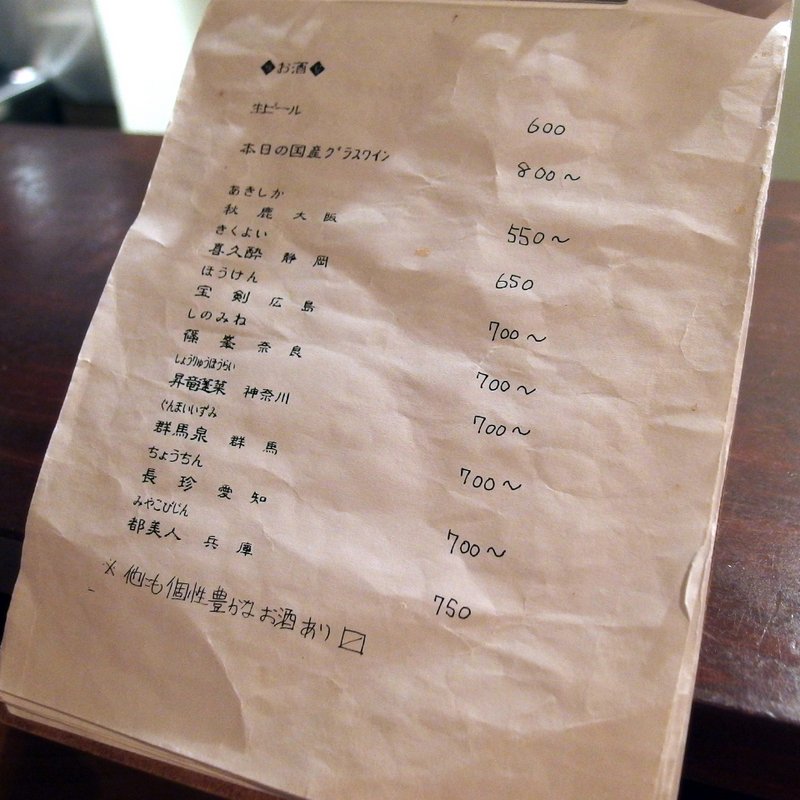 ◆お酒◆
生ビール 600
本日の国産グラスワイン 800～
あきしか
秋鹿 大阪 550～
きくよい
喜久酔 静岡 650
ほうけん
宝剣 広島 700～
しのみね
篠峯 奈良 700～
しょうりゅうほうらい
昇竜蓬莱 神奈川 700～
ぐんまいいずみ
群馬泉 群馬 700～
ちょうちん
長珍 愛知 700～
みやこびじん
都美人 兵庫 750
※他にも個性豊かなお酒あり〼